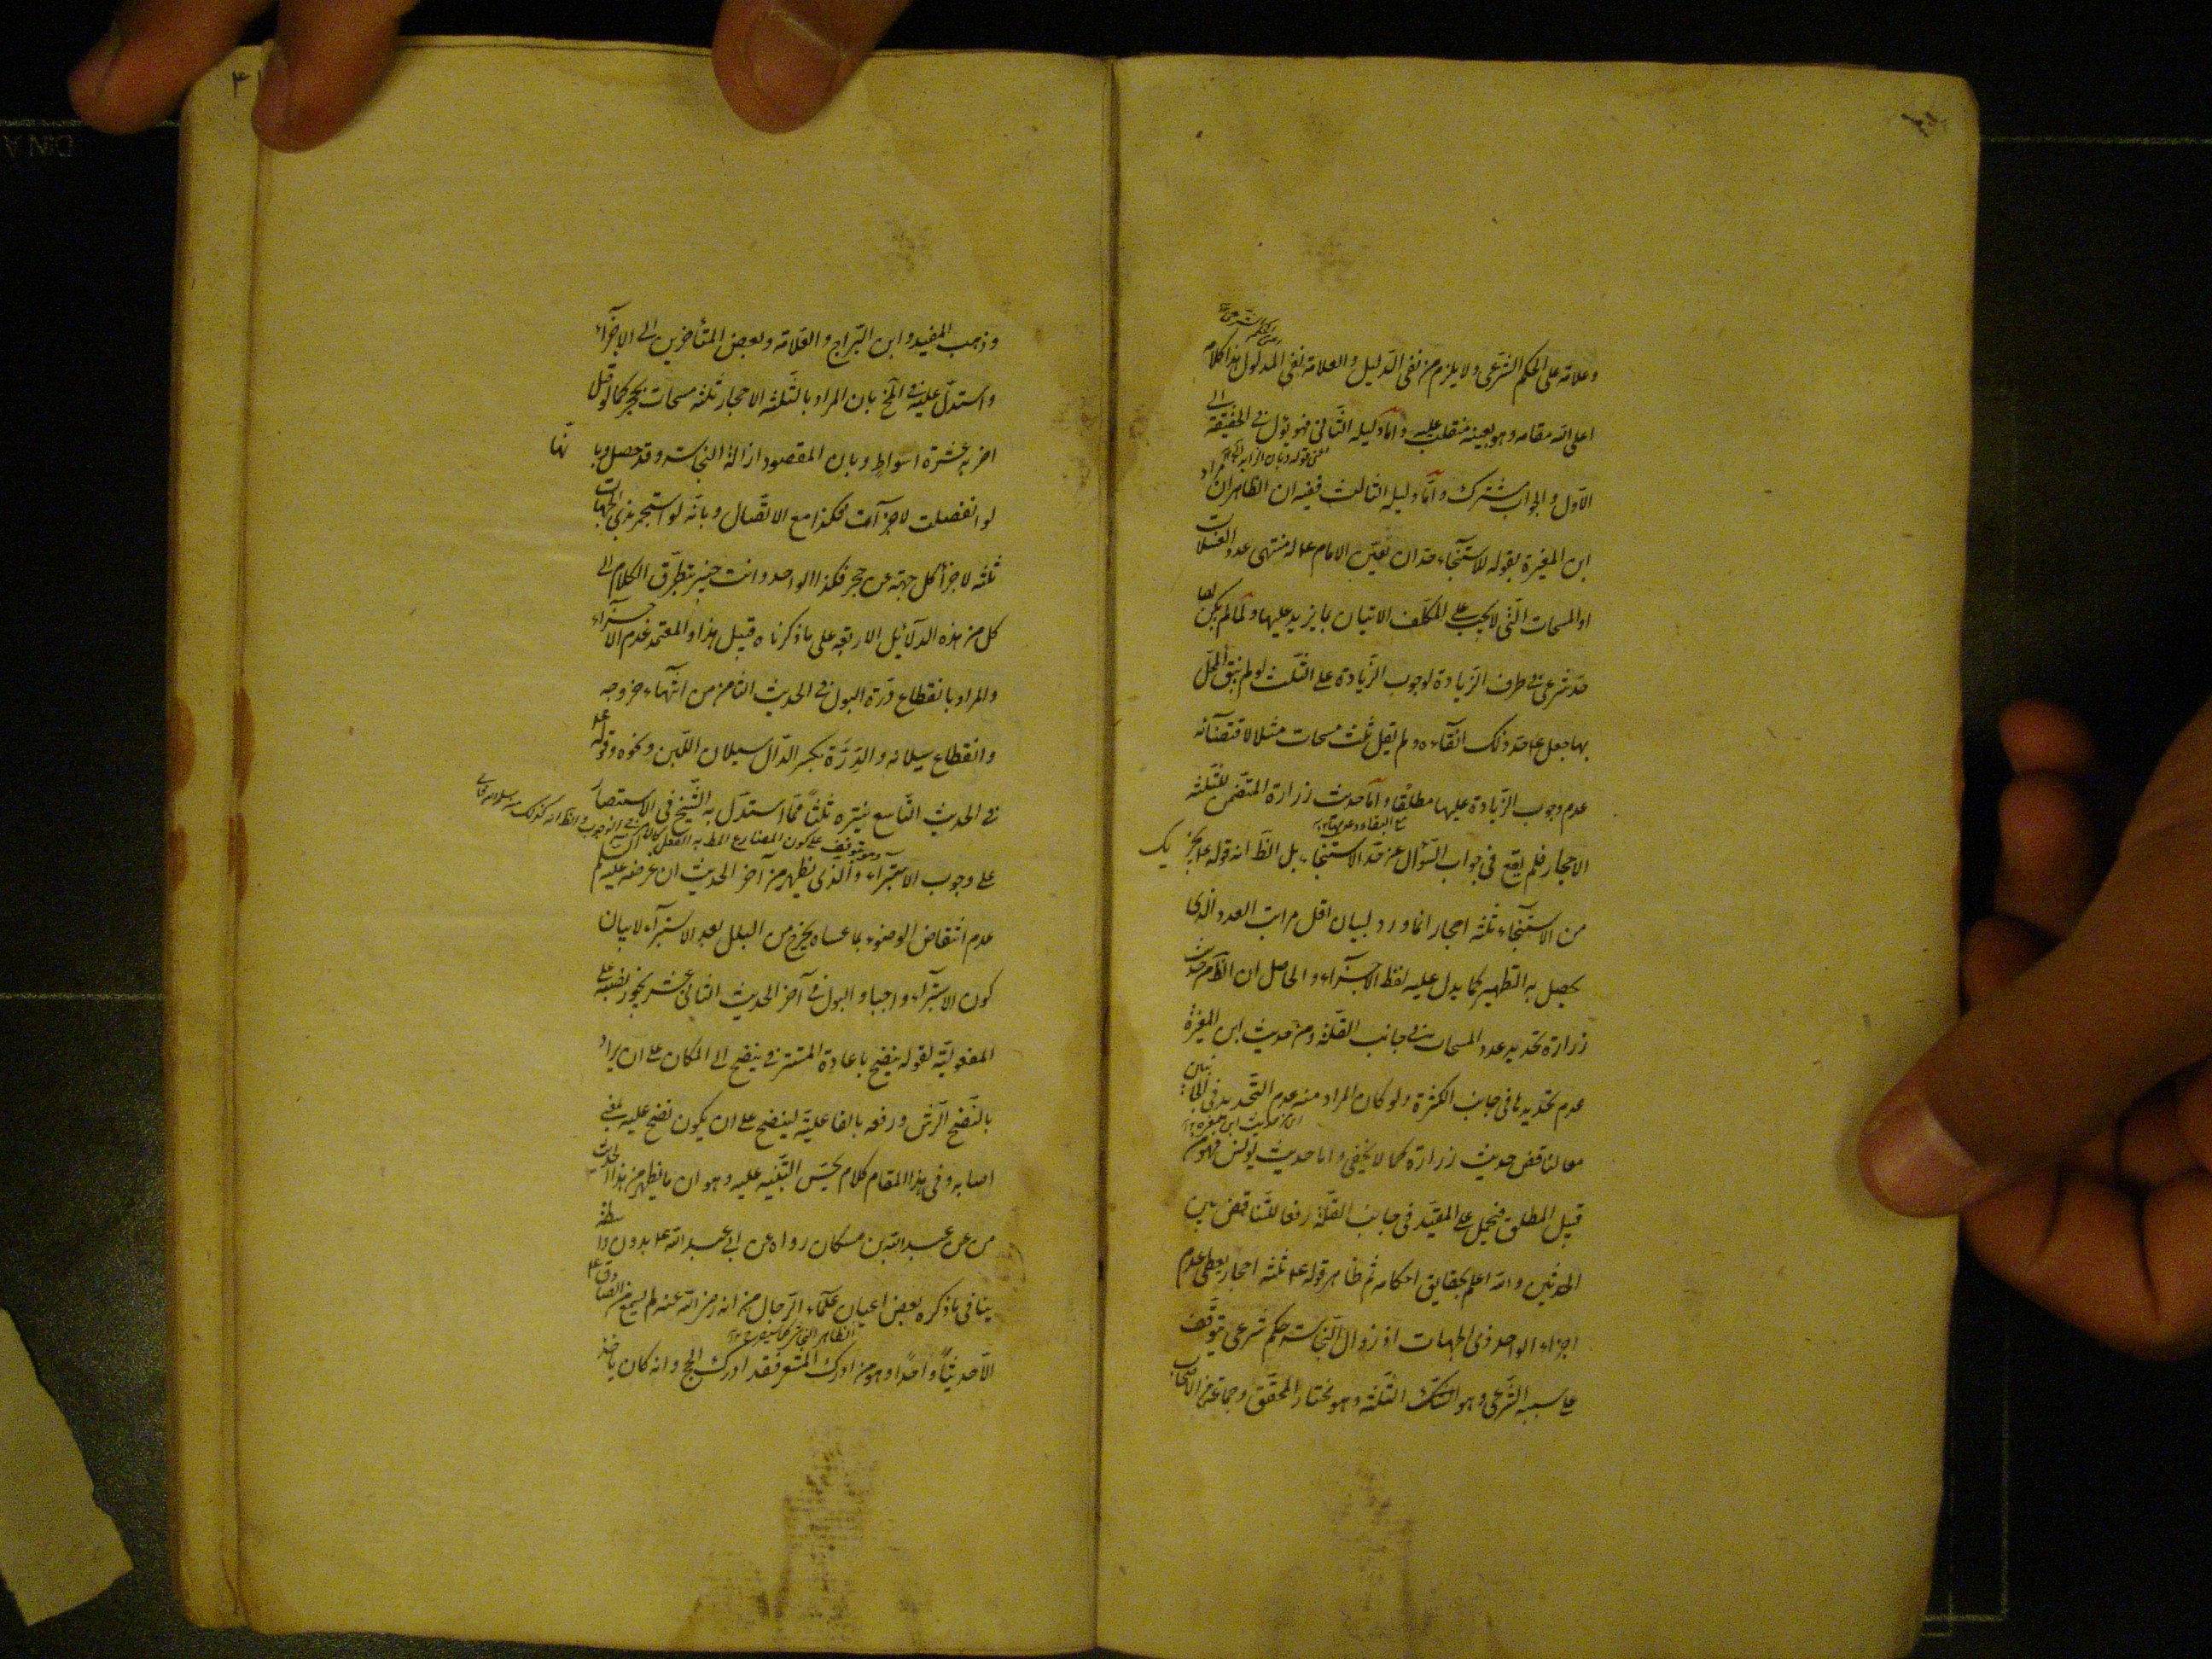 وعلامة على الحكم الشرعى ولا يلزم من نفى الدليل والعلامة نفى المدلول هذا كلام
اعلى الله مقامه وهو بعينه منقلب عليه واما دليله الثانى فهو يؤل فى الحقيقة الى
الاول والجواب مشترك واما دليله الثالث ففيه ان الظاهر ان مراد
ابن المغيرة بقوله للاستنجاء حد ان تعين الامام ع له منتهى عدد الغسلات
او المسحات التى لا يجب على المكلف الاتيان بما يزيد عليها ولما لم يكن لها
حد شرعى فى طرف الزيادة لوجوب الزيادة على الثلث لو لم ينق المحل
بها جعل ع حد ذلك انقآءه ولم يقل ثلث مسحات مثلا لاقتضآئه
عدم وجوب الزيادة عليها مطلقا واما حديث زرارة المتضمن للثلثة
مع البقاء وعدمها
الاحجار فلم يقع فى جواب السؤال عن حد الاستنجاء بل الظ انه قوله ع يجزيك
من الاستنجاء ثلثة احجار انما ورد لبيان اقل مراتب العدد الذى
يحصل به التطهير كما يدل عليه لفظ الاجزآء والحاصل ان الظ من حديث
زرارة تحديد عدد المسحات فى جانب القلة ومن حديث ابن المغيرة
عدم تحديدها فى جانب الكثرة ولو كان المراد منه عدم التحديد فى الجانبين
اى من حديث ابن مغيرة
معا لناقض حديث زرارة كما لا يخفى واما حديث يونس فهو من
قبيل المطلق فيحمل على المقيد فى جانب القلة رفعا للتناقض بين
الحديثين والله اعلم بحقايق احكامه ثم ظاهر قوله ع ثلثة احجار يعطى عدم
اجزاء الواحد ذى الجهات اذ زوال النجاسة حكم شرعى يتوقف
على سببه الشرعى وهو الثلثة وهو مختار المحقق وجماعة من الاصحاب
وذهب المفيد وابن البراج والعلامة وبعض المتأخرين الى الاجزآء
واستدل عليه فى المخ بان المراد بالثلثة الاحجار ثلثة مسحات بحجر كما لو قيل
اضربه عشرة اسواط وبان المقصود ازالة النجاسة وقد حصل وبانها
لو انفصلت لاجزأت فكذا مع الاتصال وبانه لو استجمر بذى الجهات
ثلثة لاجزأ كل جهة عن حجر فكذا الواحد وانت خبير بتطرق الكلام الى
كل من هذه الدلائل الاربعة على ما ذكرناه قبيل هذا والمعتمد عدم الاجزآء
والمراد بانقطاع درة البول فى الحديث الثامن انتهاء خروجه
وانقطاع سيلانه والدرة بكسر الدال سيلان اللبن ونحوه وقوله ع
فى الحديث التاسع ينتره ثلثا مما استدل به الشيخ فى الاستبصار
على وجوب الاستبرآء والذى يظهر من آخر الحديث ان غرضه عليه السلام
عدم انتقاض الوضوء بما عساه يخرج من البلل بعد الاستبرآء لا بيان
كون الاستبرآء واجبا والبول فى آخر الحديث الثانى عشر يجوز نصبه على
المفعولية لقوله ينضح باعادة المستتر فى ينضح الى المكان على ان يراد
بالنضح الرش ورفعه بالفاعلية لينضح على ان يكون نضح عليه بمعنى
اصابه وفى هذا المقام كلام يحسن التنبيه عليه وهو ان ما يظهر من هذا الحديث
من عبد الله بن مسكان رواه عن ابى عبد الله ع بدون واسطة
ينافى ما ذكره بعض اعيان علماء الرجال من انه رضى الله عنه لم يسمع من الصادق ع
الا حديثا واحدا وهو من ادرك المشعر فقد ادرك الحج وانه كان ياخذ